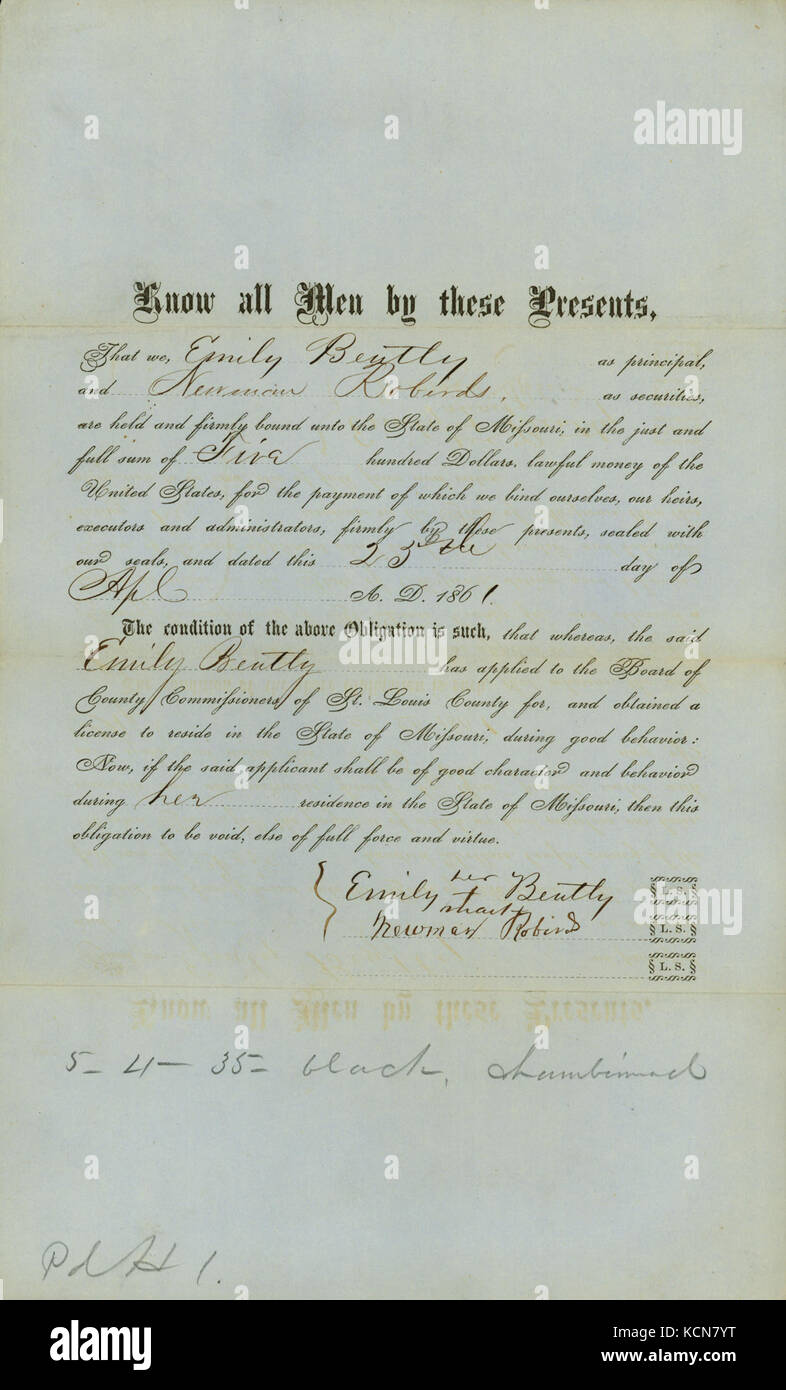 Know all Men by these Presents,
That we, Emily Beutly as principal,
and Newman Robirds, as securities,
are held and firmly bound unto the State of Missouri, in the just and
full sum of Five hundred Dollars, lawful money of the
United States, for the payment of which we bind ourselves, our heirs,
executors and administrators, firmly by these presents, sealed with
our seals, and dated this 23rd day of
Apl A. D. 1861.
The condition of the above Obligation is such, that whereas, the said
Emily Beutly has applied to the Board of
County Commissioners of St. Louis County for, and obtained a
license to reside in the State of Missouri, during good behavior:
Now, if the said applicant shall be of good character and behavior
during her residence in the State of Missouri, then this
obligation to be void, else of full force and virtue.
her
Emily + Beutly L. S.
mark
Newman Robirds L. S.
L. S.
5-4-35- black,
Pd 1.
alamy
Image ID: KCN7YT
www.alamy.com